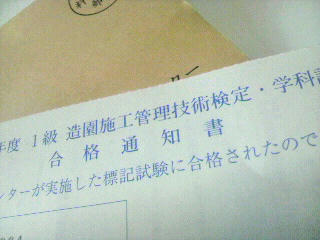 年度 1級 造園施工管理技術検定・学科
合格通知書
ンターが実施した標記試験に合格されたので